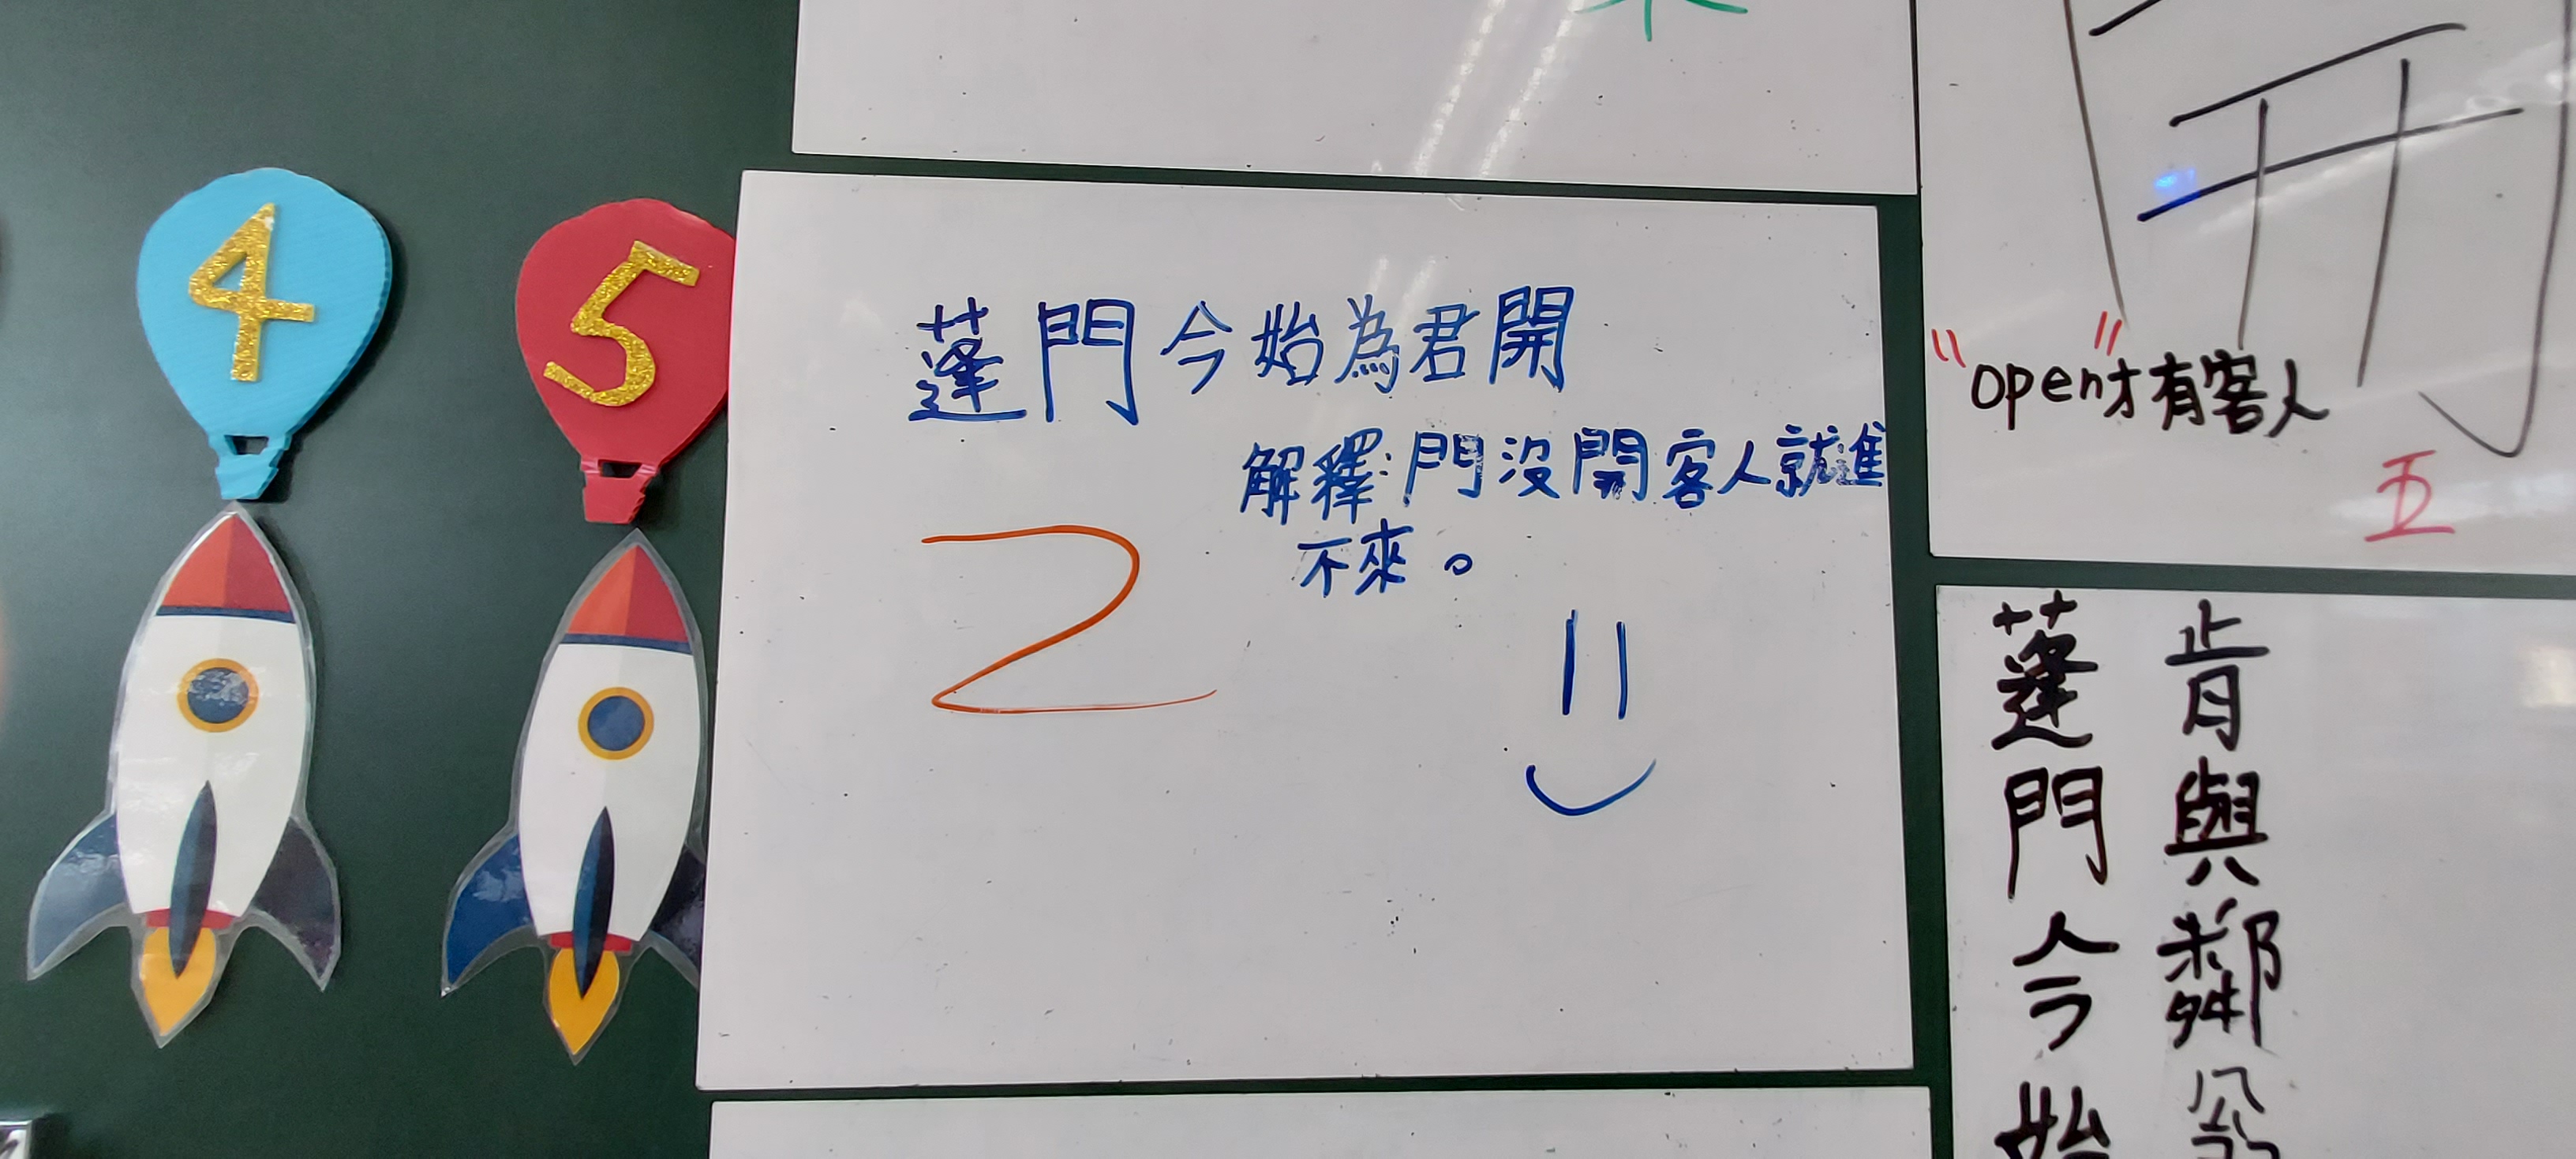 4
5
蓬門今始為君開
解釋:門沒開客人就進
不來。
2
開
"open"才有客人
五
蓬門今始
肯與鄰